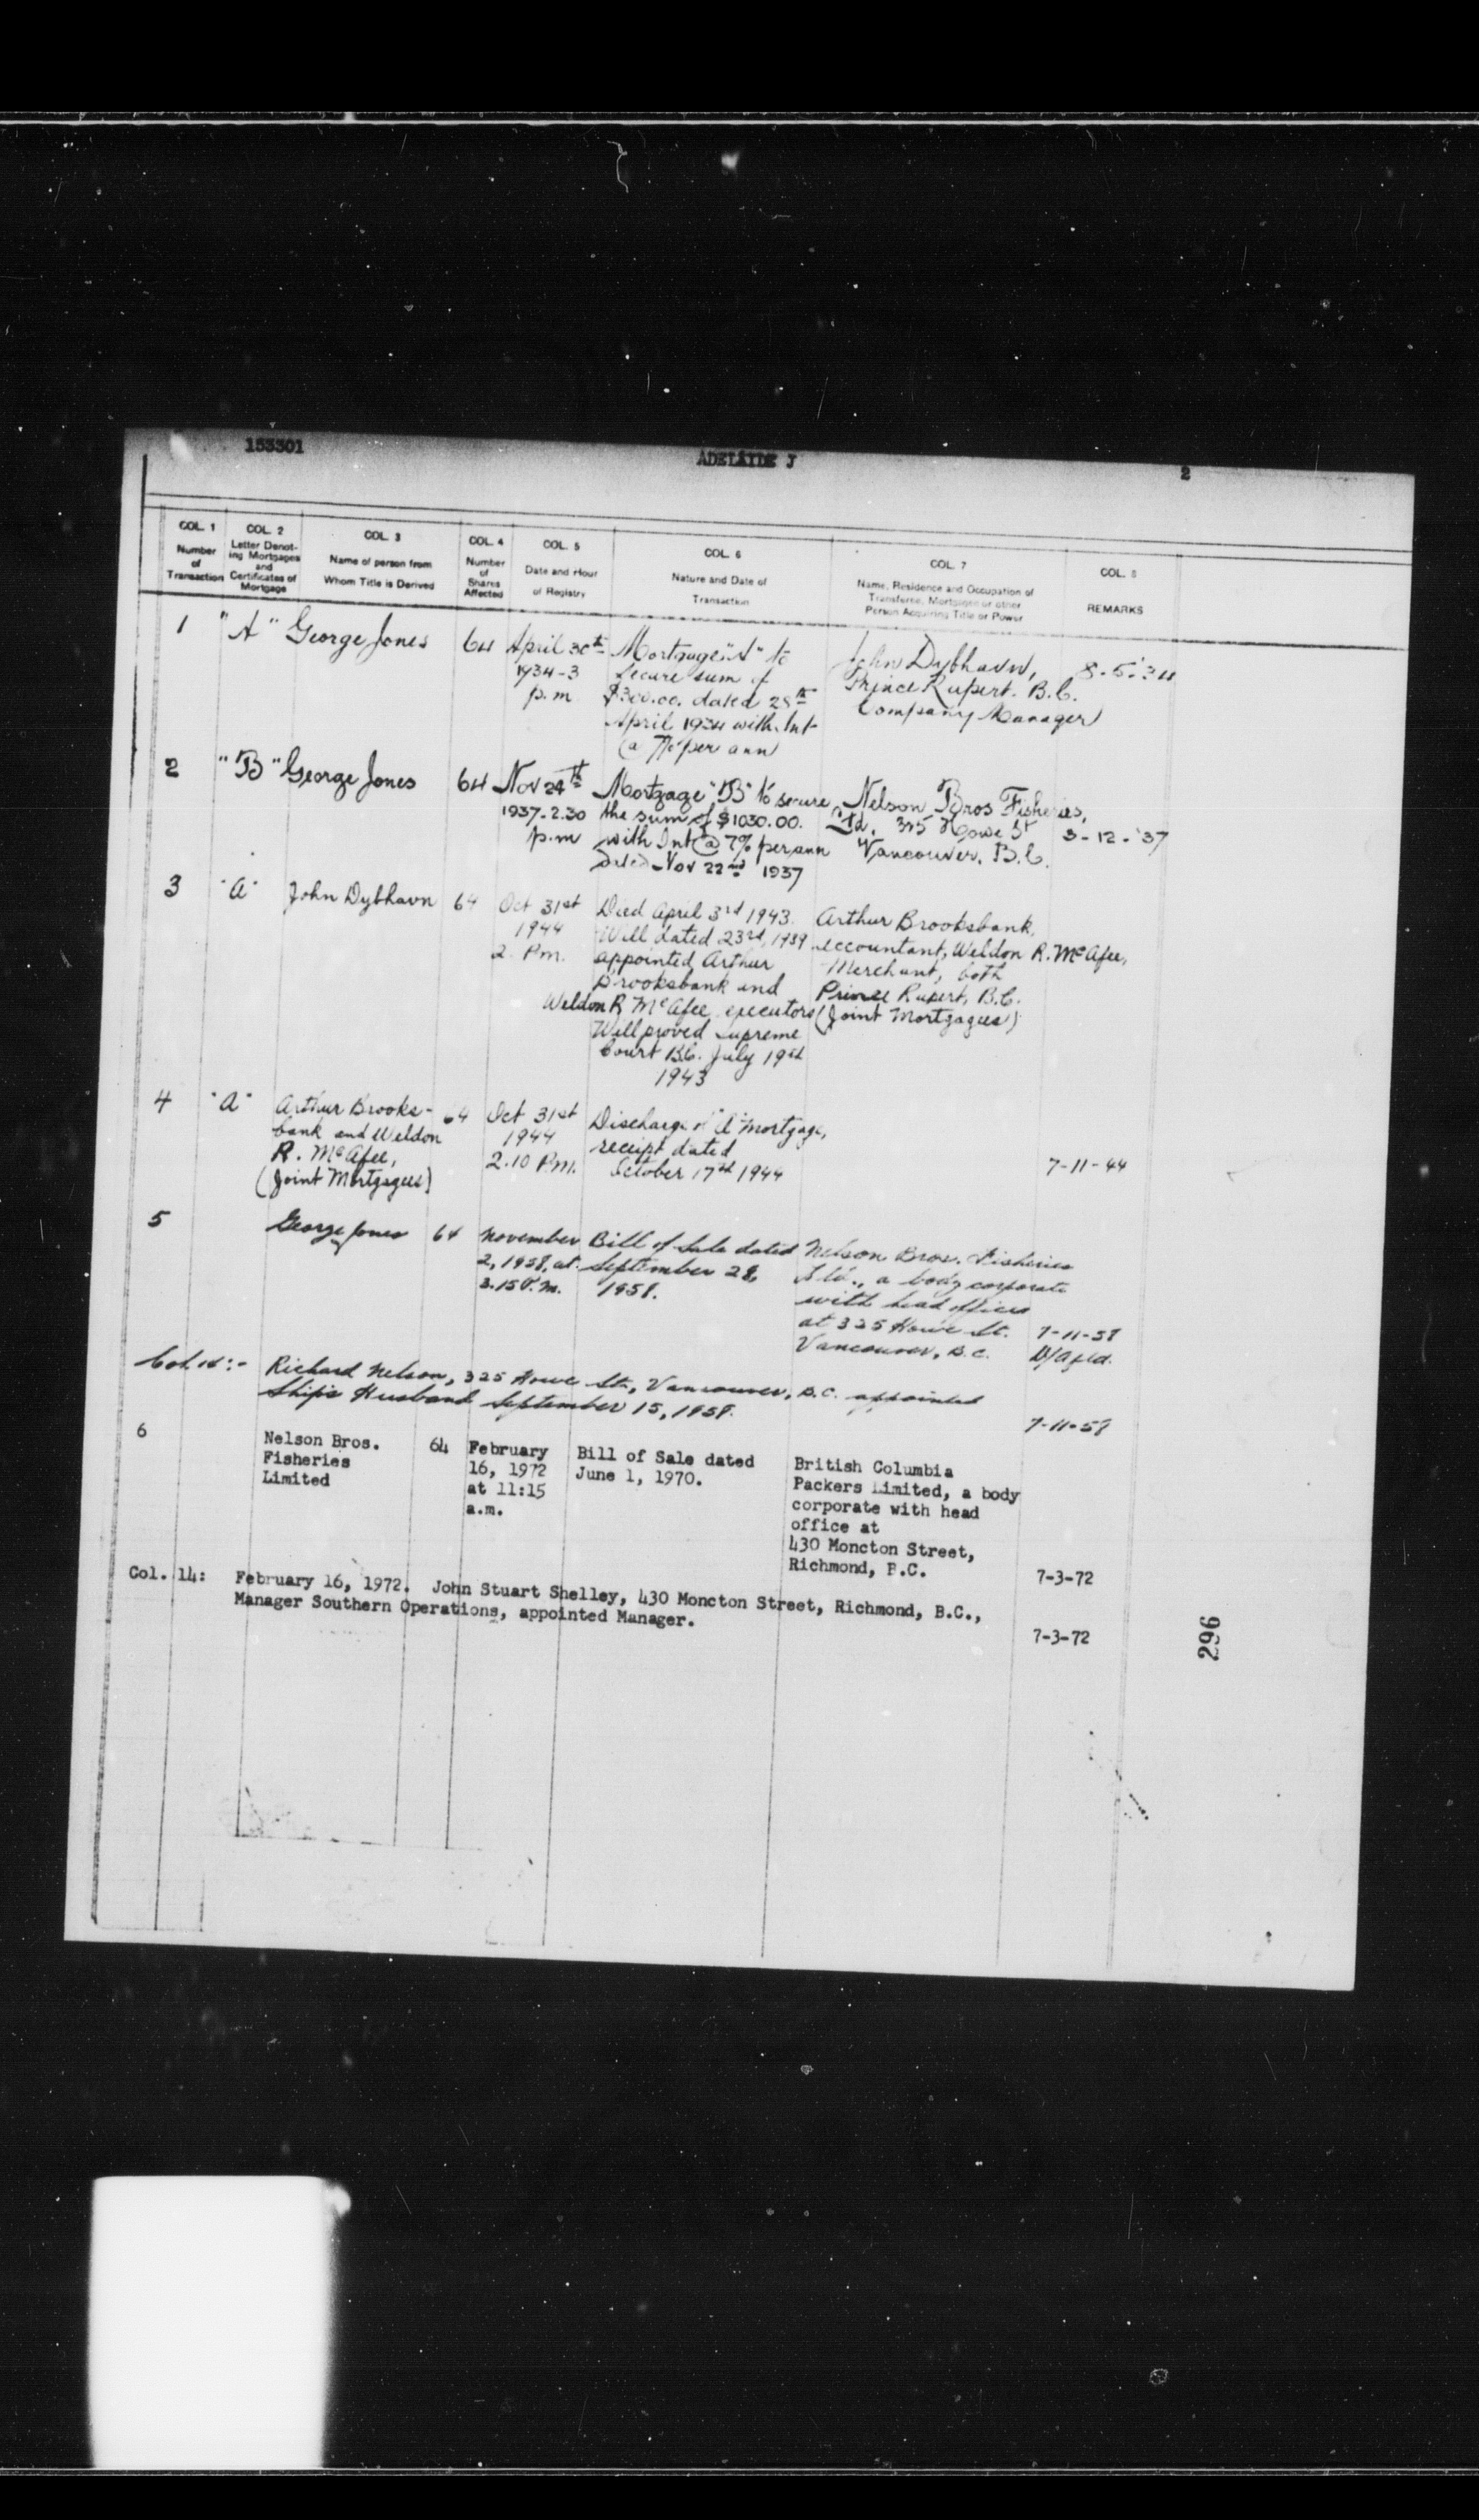 153301
ADELAIDE J
2
COL. 1 Number of Transaction
COL. 2 Letter Denot-ing Mortgages and Certificates of Mortgage
COL. 3 Name of person from Whom Title is Derived
COL. 4 Number of Shares Affected
COL. 5 Date and Hour of Registry
COL. 6 Nature and Date of Transaction
COL. 7 Name, Residence and Occupation of Transferee, Mortgagee or other Person Acquiring Title or Power
COL. 8 REMARKS
1 "A" George Jones 64
April 30th
1934-3
p.m
Mortgage "A" to
secure sum of
$300.00. dated 28th
April 1934 with Int
@ 7% per ann
John Dybhavn,
Prince Rupert. B.C.
Company Manager
8-5-'34
2 "B" George Jones 64
Nov 24th
1937-2.30
p.m
Mortgage "B" to secure
the sum of $1030.00.
with Int @ 7% per ann
Dated Nov 22nd 1937
Nelson Bros Fisheries,
Ltd. 325 Howe St
Vancouver. B.C.
3-12-'37
3 "A" John Dybhavn 64
Oct 31st
1944
2. P.m.
Died April 3rd 1943.
Will dated 23rd, 1939
appointed Arthur
Brooksbank and
Weldon R McAfee executors
Will proved Supreme
Court B.C. July 19th
1943
Arthur Brooksbank,
accountant, Weldon R. McAfee,
Merchant, both
Prince Rupert, B.C.
(Joint Mortgagees)
4 "A"
Arthur Brooks-
bank and Weldon
R. McAfee,
(Joint Mortgagees)
64
Oct 31st
1944
2.10 P.m.
Discharge of "A" Mortgage,
receipt dated
October 17th 1944
7-11-44
5 George Jones 64
November
2, 1958, at
3.15 P.m.
Bill of Sale dated
September 28,
1958.
Nelson Bros. Fisheries
Ltd., a body corporate
with head offices
at 325 Howe St.
Vancouver, B.C.
7-11-58
Col. 14:- Richard Nelson, 325 Howe St., Vancouver, B.C. appointed
Ship's Husband September 15, 1958.
7-11-58
6
Nelson Bros.
Fisheries
Limited
64
February
16, 1972
at 11:15
a.m.
Bill of Sale dated
June 1, 1970.
British Columbia
Packers Limited, a body
corporate with head
office at
430 Moncton Street,
Richmond, B.C.
7-3-72
Col. 14: February 16, 1972. John Stuart Shelley, 430 Moncton Street, Richmond, B.C.,
Manager Southern Operations, appointed Manager.
7-3-72
296